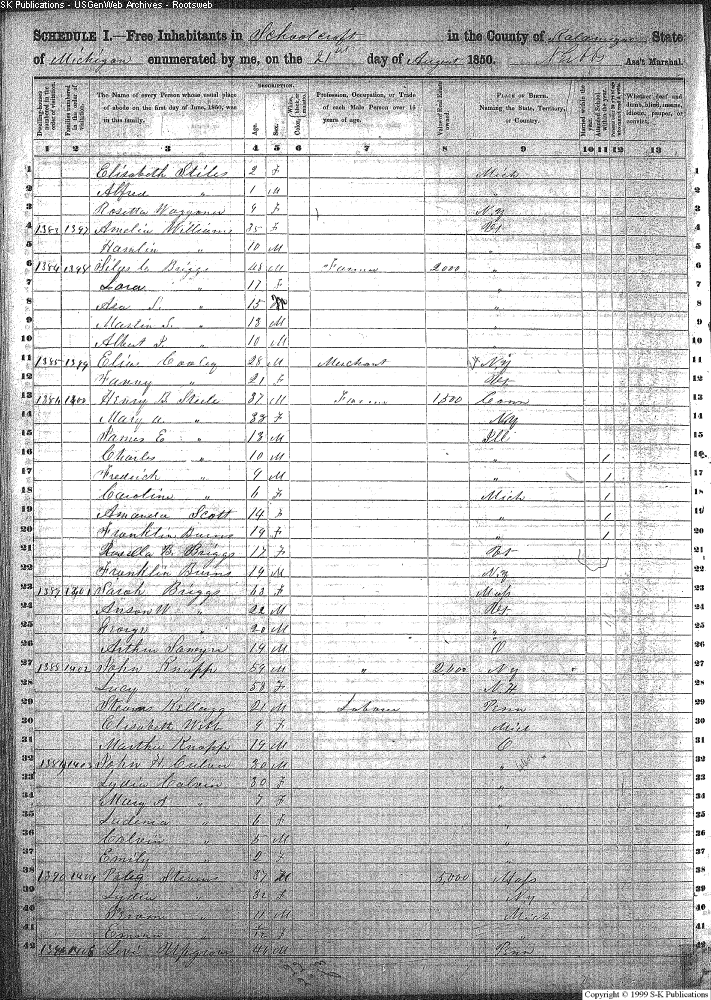 S-K Publications - USGenWeb Archives - Rootsweb
SCHEDULE I.—Free Inhabitants in Schoolcraft in the County of Kalamazoo State
of Michigan enumerated by me, on the 21st day of August 1850. Ass't Marshal.
DESCRIPTION.
Dwelling-houses numbered in the order of visitation. Families numbered in the order of visitation. The Name of every Person whose usual place of abode on the first day of June, 1850, was in this family. Age. Sex. Color, White, black or mulatto. Profession, Occupation, or Trade of each Male Person over 15 years of age. Value of Real Estate owned. PLACE OF BIRTH. Naming the State, Territory, or Country. Married within the year. Attended School within the year. Whether deaf and dumb, blind, insane, idiotic, pauper, or convict.
1 2 3 4 5 6 7 8 9 10 11 12 13
1 Elisabeth Stiles 2 F Mich 1
2 Alfred " 1 M " 2
3 Rosetta Waggoner 9 F N.Y 3
4 1383 1397 Amelia Williams 35 F Vt 4
5 Hamlin " 10 M 5
6 1384 1398 Silas Briggs 48 M Farmer 2000 " 6
7 Lora " 17 F " 7
8 Asa S. " 15 M " 8
9 Martin S. " 13 M " 9
10 Albert " 10 M " 10
11 1385 1399 Elias Cooley 28 M Merchant N.Y 11
12 Fanny " 21 F Vt 12
13 1386 1400 Henry B Steele 37 M Farmer 1,500 Conn 13
14 Mary A. " 33 F N.Y 14
15 James E " 13 M Ill 15
16 Charles " 10 M " 1 16
17 Fredrick " 9 M " 1 17
18 Caroline " 6 F Mich 1 18
19 Amanda Scott 14 F " 1 19
20 Franklin Burns 19 F " 1 20
21 Rosella B. Briggs 17 F Vt 21
22 Franklin Burns 19 M N.Y 22
23 1387 1401 Sarah Briggs 63 F Mass 23
24 Anson W " 22 M Vt 24
25 George " 20 M " 25
26 Arthur Sawyer 14 M O 26
27 1388 1402 John Knapp 59 M " 2,000 N.Y 27
28 Lucy " 58 F N.H 28
29 Stevens Kellogg 21 M Laborer Penn 29
30 Elisabeth 9 F Mich 30
31 Martha Knapp 19 M O 31
32 1389 1403 John H Culver 30 M " 32
33 Lydia Calvin 30 F " 33
34 Mary A " 7 F " 34
35 Ludenia " 6 F " 35
36 Calvin " 5 M " 36
37 Emily " 2 F 37
38 1390 1404 Peleg Stevens 37 M 5,000 Mass 38
39 Lydia " 32 F N.Y 39
40 " 11 M Mich 40
41 " F " 41
42 1405 Levi 42 M Penn 42
Copyright © 1999 S-K Publications